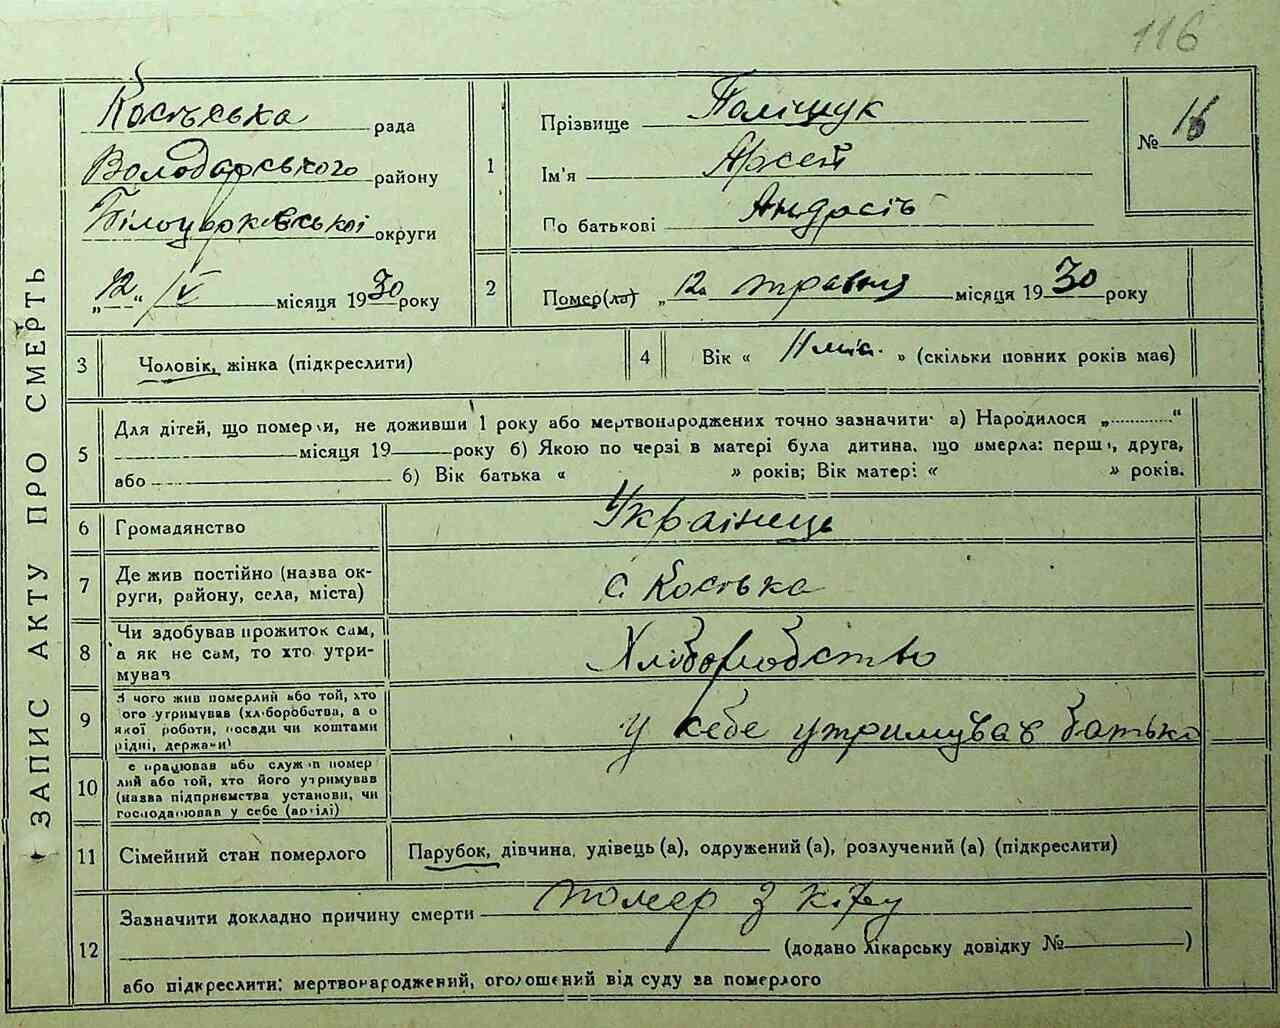 116
ЗАПИС АКТУ ПРО СМЕРТЬ
Косівська рада
Володарського району
Білоцерковської округи
„12“ /V місяця 1930 року
1
Прізвище Поліщук
Ім'я Арсен
По батькові Андрєів
№ 16
2
Помер(ла) „12“ травня місяця 1930 року
3
Чоловік, жінка (підкреслити)
4
Вік « 11 міс. » (скільки повних років має)
5
Для дітей, що померли, не доживши 1 року або мертвонароджених точно зазначити: а) Народилося „............“
місяця 19 року б) Якою по черзі в матері була дитина, що вмерла: перша, друга,
або б) Вік батька « » років; Вік матері « » років.
6
Громадянство
Українець
7
Де жив постійно (назва ок-
руги, району, села, міста)
с Косівка
8
Чи здобував прожиток сам,
а як не сам, то хто утри-
мував
Хліборобство
9
З чого жив померлий або той, хто
його утримував (хліборобства, а о
якої роботи, посади чи коштами
рідні, держави)
у себе утримував батько
10
е працював або служив помер
лий або той, хто його утримував
(назва підприємства установи, чи
господарював у себе (артілі)
11
Сімейний стан померлого
Парубок, дівчина, удівець (а), одружений (а), розлучений (а) (підкреслити)
12
Зазначити докладно причину смерти помер з кіру
(додано лікарську довідку № )
або підкреслити: мертвонароджений, оголошений від суду за померлого